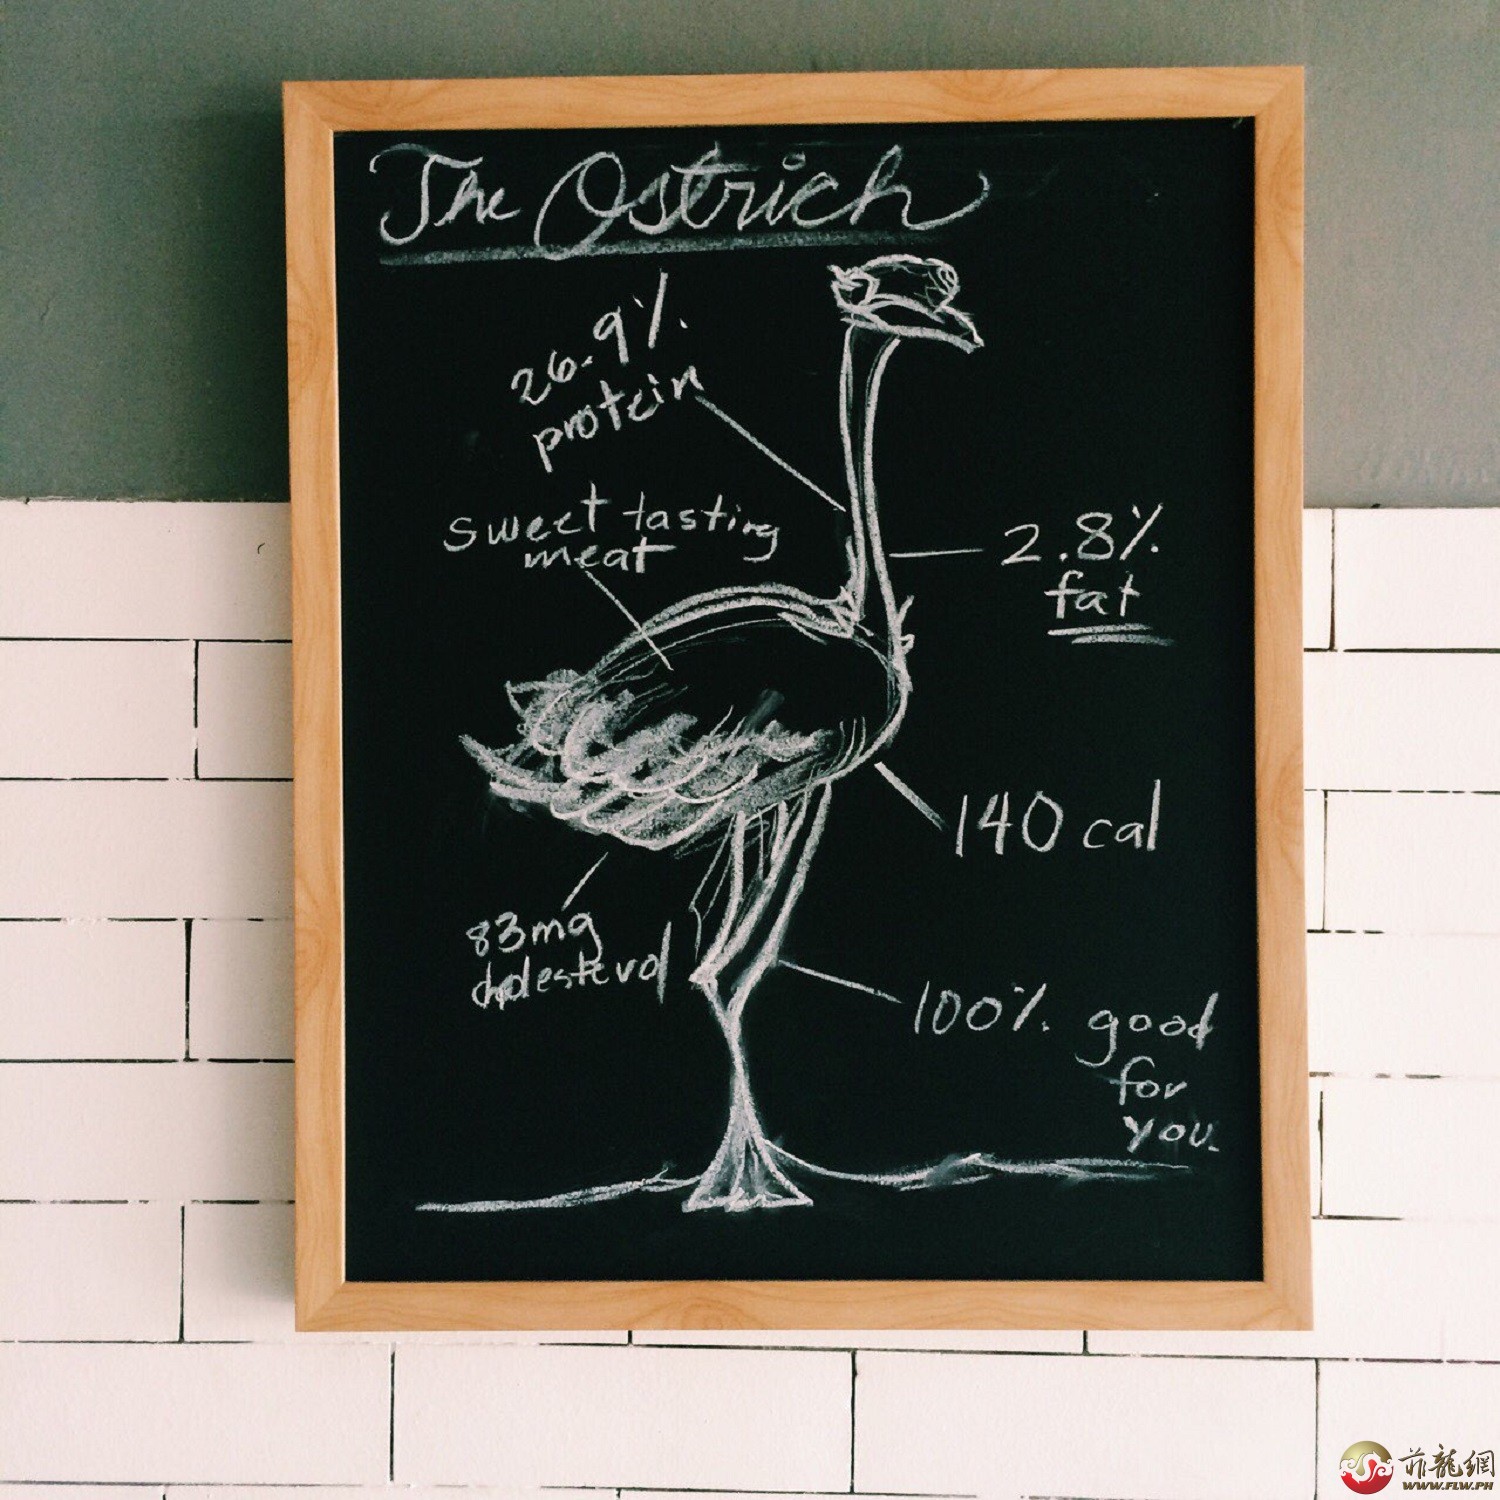 The Ostrich
26.9%
protein
sweet tasting
meat
2.8%
fat
140 cal
83mg
cholesterol
100% good
for
you.
菲龍網
WWW.FLW.PH